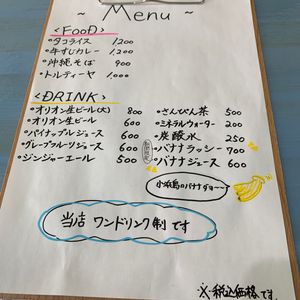 ~ Menu ~
<FOOD>
・タコライス 1,200
・牛すじカレー 1,200
・沖縄そば 900
・トルティーヤ 1,000
<DRINK>
・オリオン生ビール(大) 800
・オリオン生ビール 600
・パイナップルジュース 600
・グレープフルーツジュース 600
・ジンジャーエール 500
・さんぴん茶 500
・ミネラルウォーター 200
・炭酸水 250
・バナナラッシー 700
・バナナジュース 600
小浜島のバナナダヨ〜〜
当店 ワンドリンク制 です
※税込価格です。